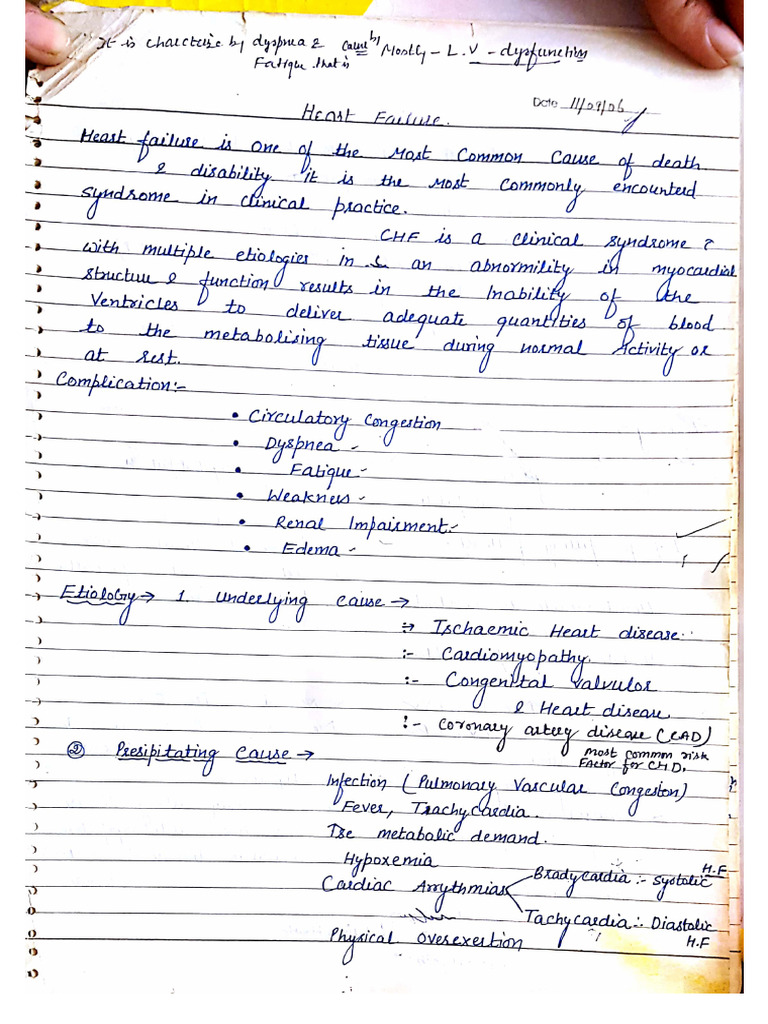 It is charcterize by dyspnea & cause by Mostly - L.V - dysfunction
Fatique that is
Date 11/09/06
Heart Failure.
Heart failure is one of the Most Common Cause of death
& disability it is the most commonly encounterd
syndrome in clinical practice.
CHF is a clinical syndrome
with multiple etiologies in an abnormility in myocardial
structure & function results in the Inability of the
Ventricles to deliver adequate quantities of blood
to the metabolising tissue during normal Activity or
at rest.
Complication:-
• Circulatory Congestion
• Dyspnea -
• Fatique -
• Weakness -
• Renal Impairment -
• Edema -
Etiology → 1. Underlying cause →
:- Ischaemic Heart disease.
:- Cardiomyopathy.
:- Congenital valvulor
& Heart disease
:- Coronary artery disease (CAD)
most common risk
Factor for CHD.
② Presipitating Cause →
Infection (Pulmonary Vascular Congeston)
Fever, Trachycardia.
metabolic demand.
Hypoxemia
Cardiac Arrythmias Bradycardia :- Systolic H.F
Tachycardia :- Diastolic H.F
Physical Overexertion